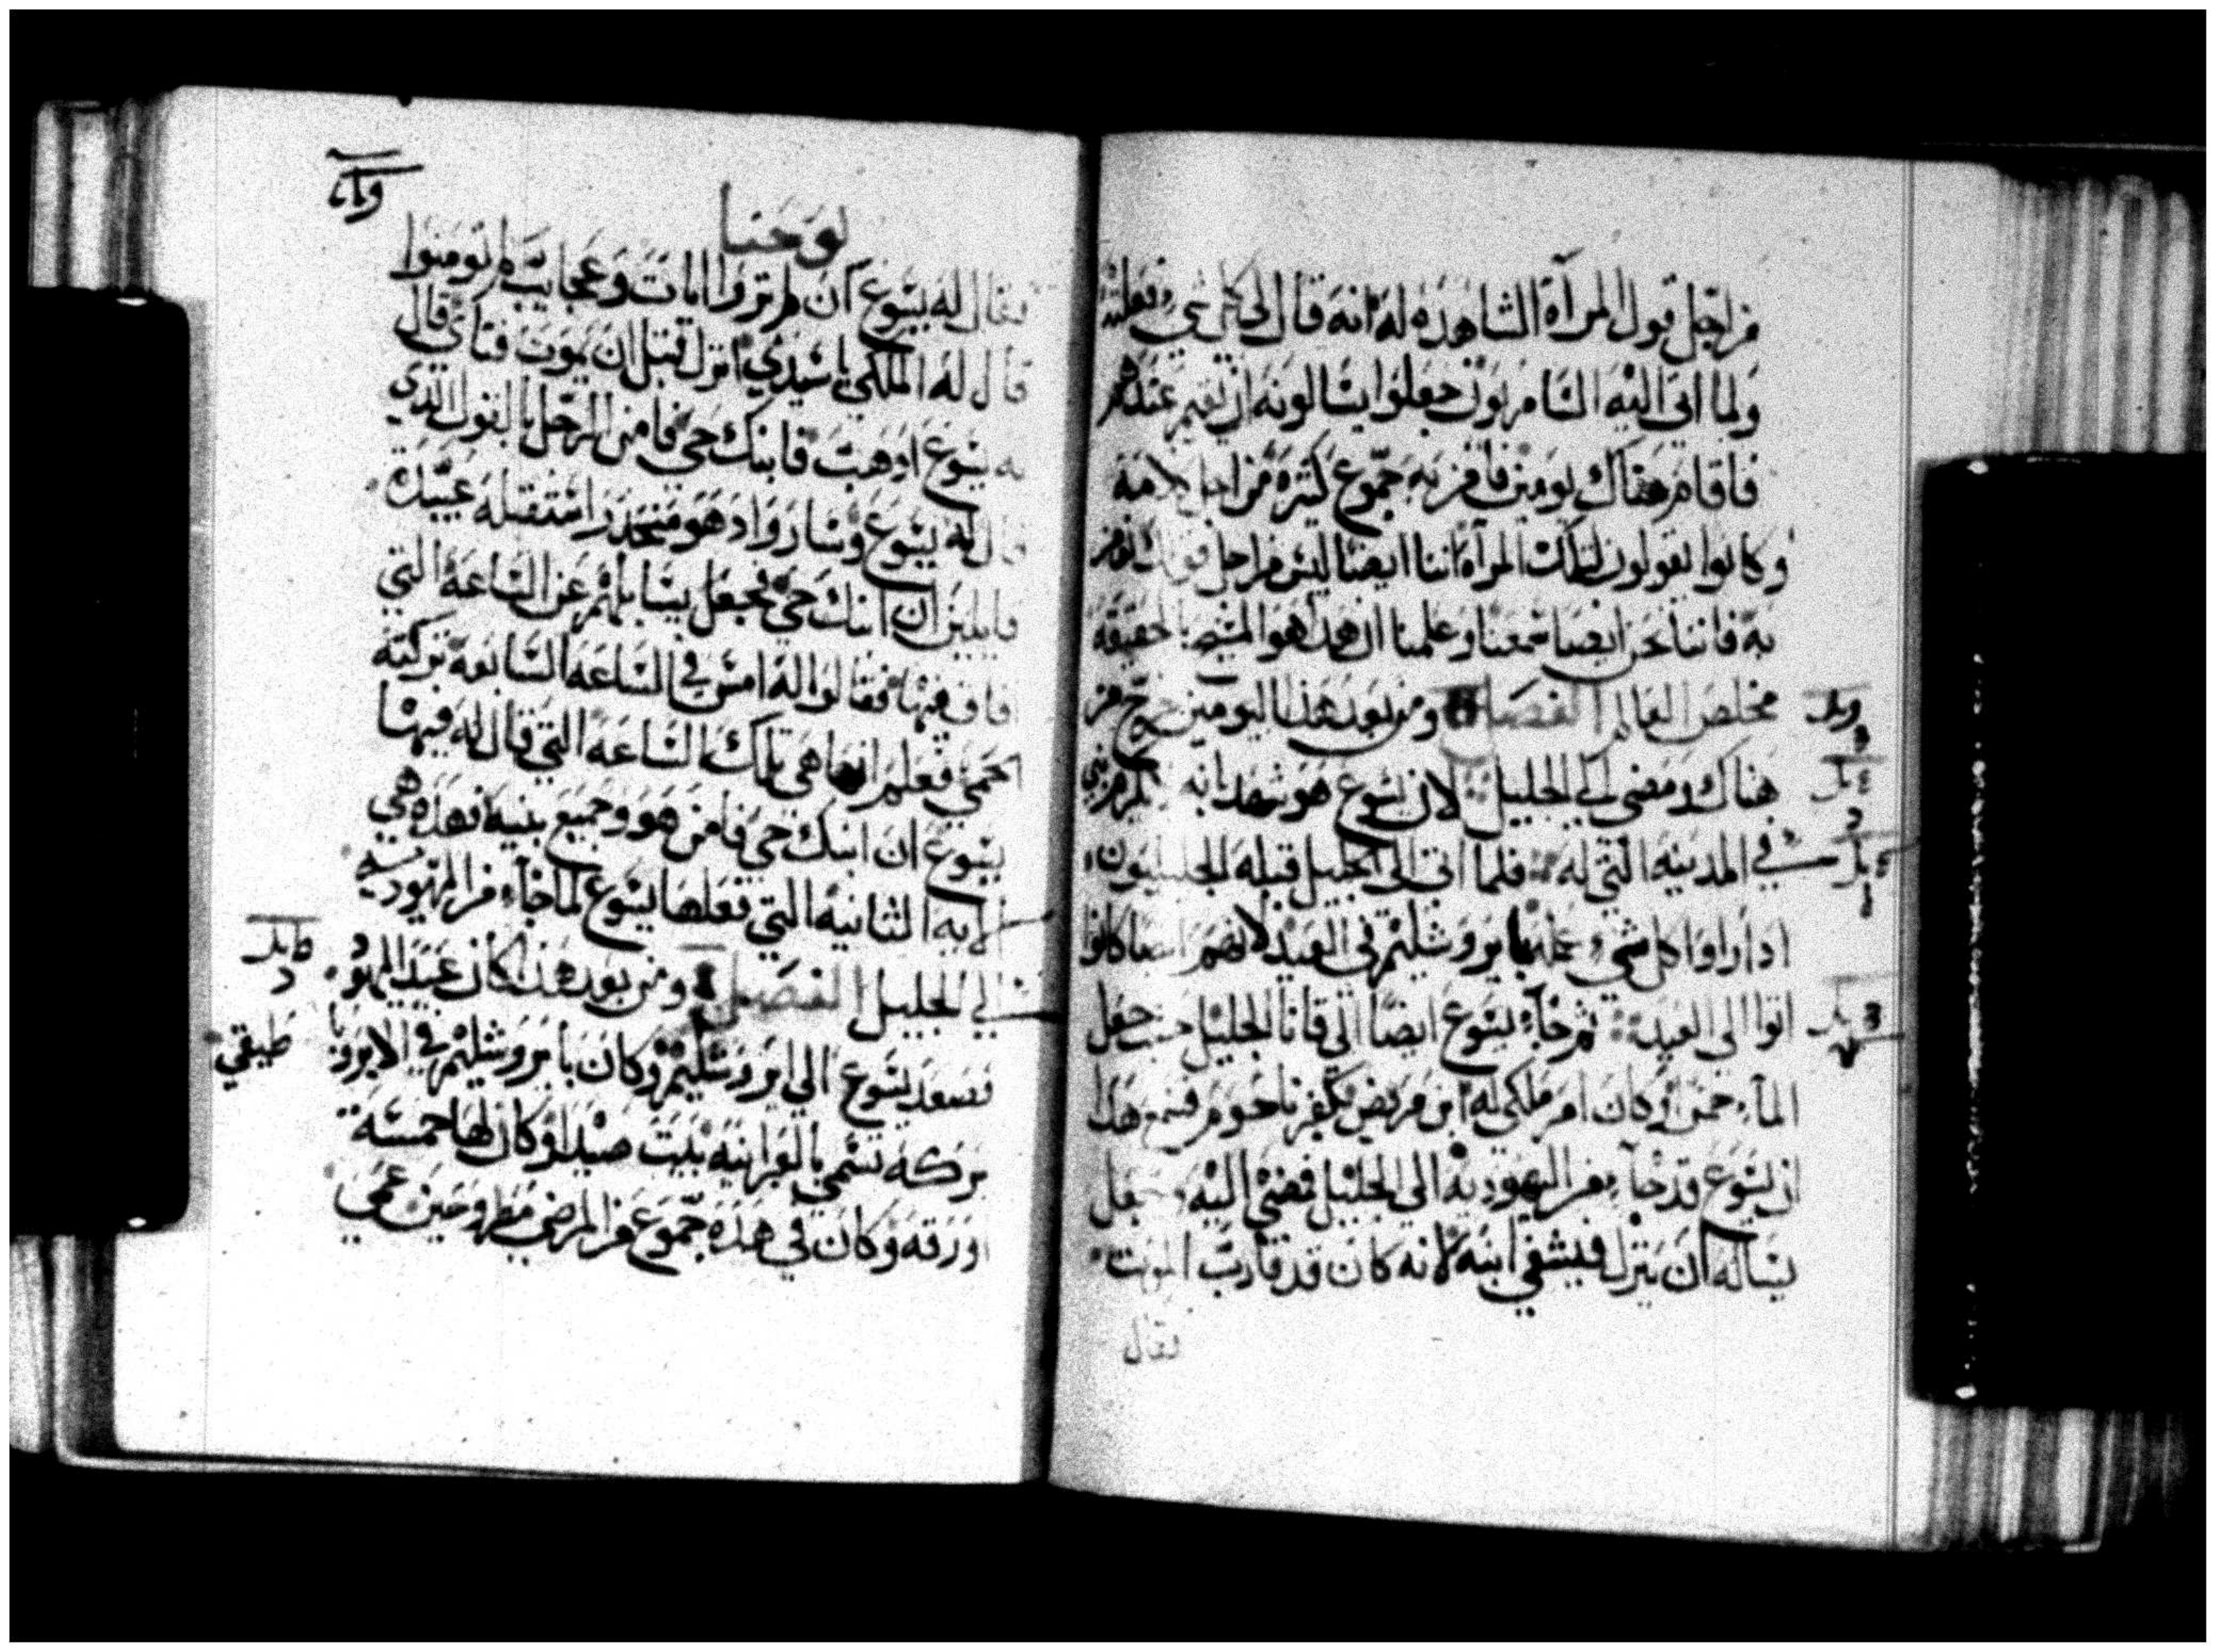 من اجل قول المرآة الشاهده له انه قال لي كل شي فعلته
ولما اتى اليه السامريون جعلوا يسالونه ان يقيم عندهم
فاقام هناك يومين فامن به جموع كثيره من اجل كلامه
وكانوا يقولون لتلك المرآه اننا ايضا ليس من اجل قولك نومن
به فاننا نحن ايضا سمعنا وعلمنا ان هدا هو المسيح بالحقيقه
مخلص العالم الفصل ومن بعد هذا اليومين خرج من
هناك ومضى الى الجليل لان يسوع هو شهد انه لم يكرم نبي
في المدينه التي له فلما اتى الى الجليل قبله الجليليون
ادا راوا كل شي عمله بايروشليم في العيد لانهم ايضا كانوا
اتوا الى العيد ثم جآء يسوع ايضا الي قانا الجليل حيث جعل
المآء خمرا وكان امر ملكي له ابن مريض بكفرناحوم فسمع هدا
ان يسوع قد جآء من اليهوديه الى الجليل فمضى اليه وجعل
يساله ان ينزل فيشفي ابنه لانه كان قد قارب الموت
فقال
يوحنا
فقال له يسوع ان لم تروا ايات وعجايب لم تومنوا
قال له الملكي يا سيدي انزل قبل ان يموت فتاي قال
له يسوع ادهب فابنك حي فامن الرجل بالقول الدي
قال له يسوع وسار واد هو منحدر استقبله عبيده
قايلين ان ابنك حي فجعل يسايلهم عن الساعه التي
فاق فيها فقالوا له امس في الساعه السابعه تركته
الحمى فعلم انها هي تلك الساعه التي قال له فيها
يسوع ان ابنك حي فامن هو وجميع بنيه فهده هي
الايه الثانيه التي فعلها يسوع لما جآء من اليهوديه
الي الجليل الفصل ومن بعد هذا كان عيد اليهود
فصعد يسوع الي ايروشليم وكان بايروشليم في الابروبا
طيقي
بركه تسمي بالعبرانيه بيت صيدا وكان لها خمسة
اورقه وكان في هده جموع من المرضى مطروحين عمي